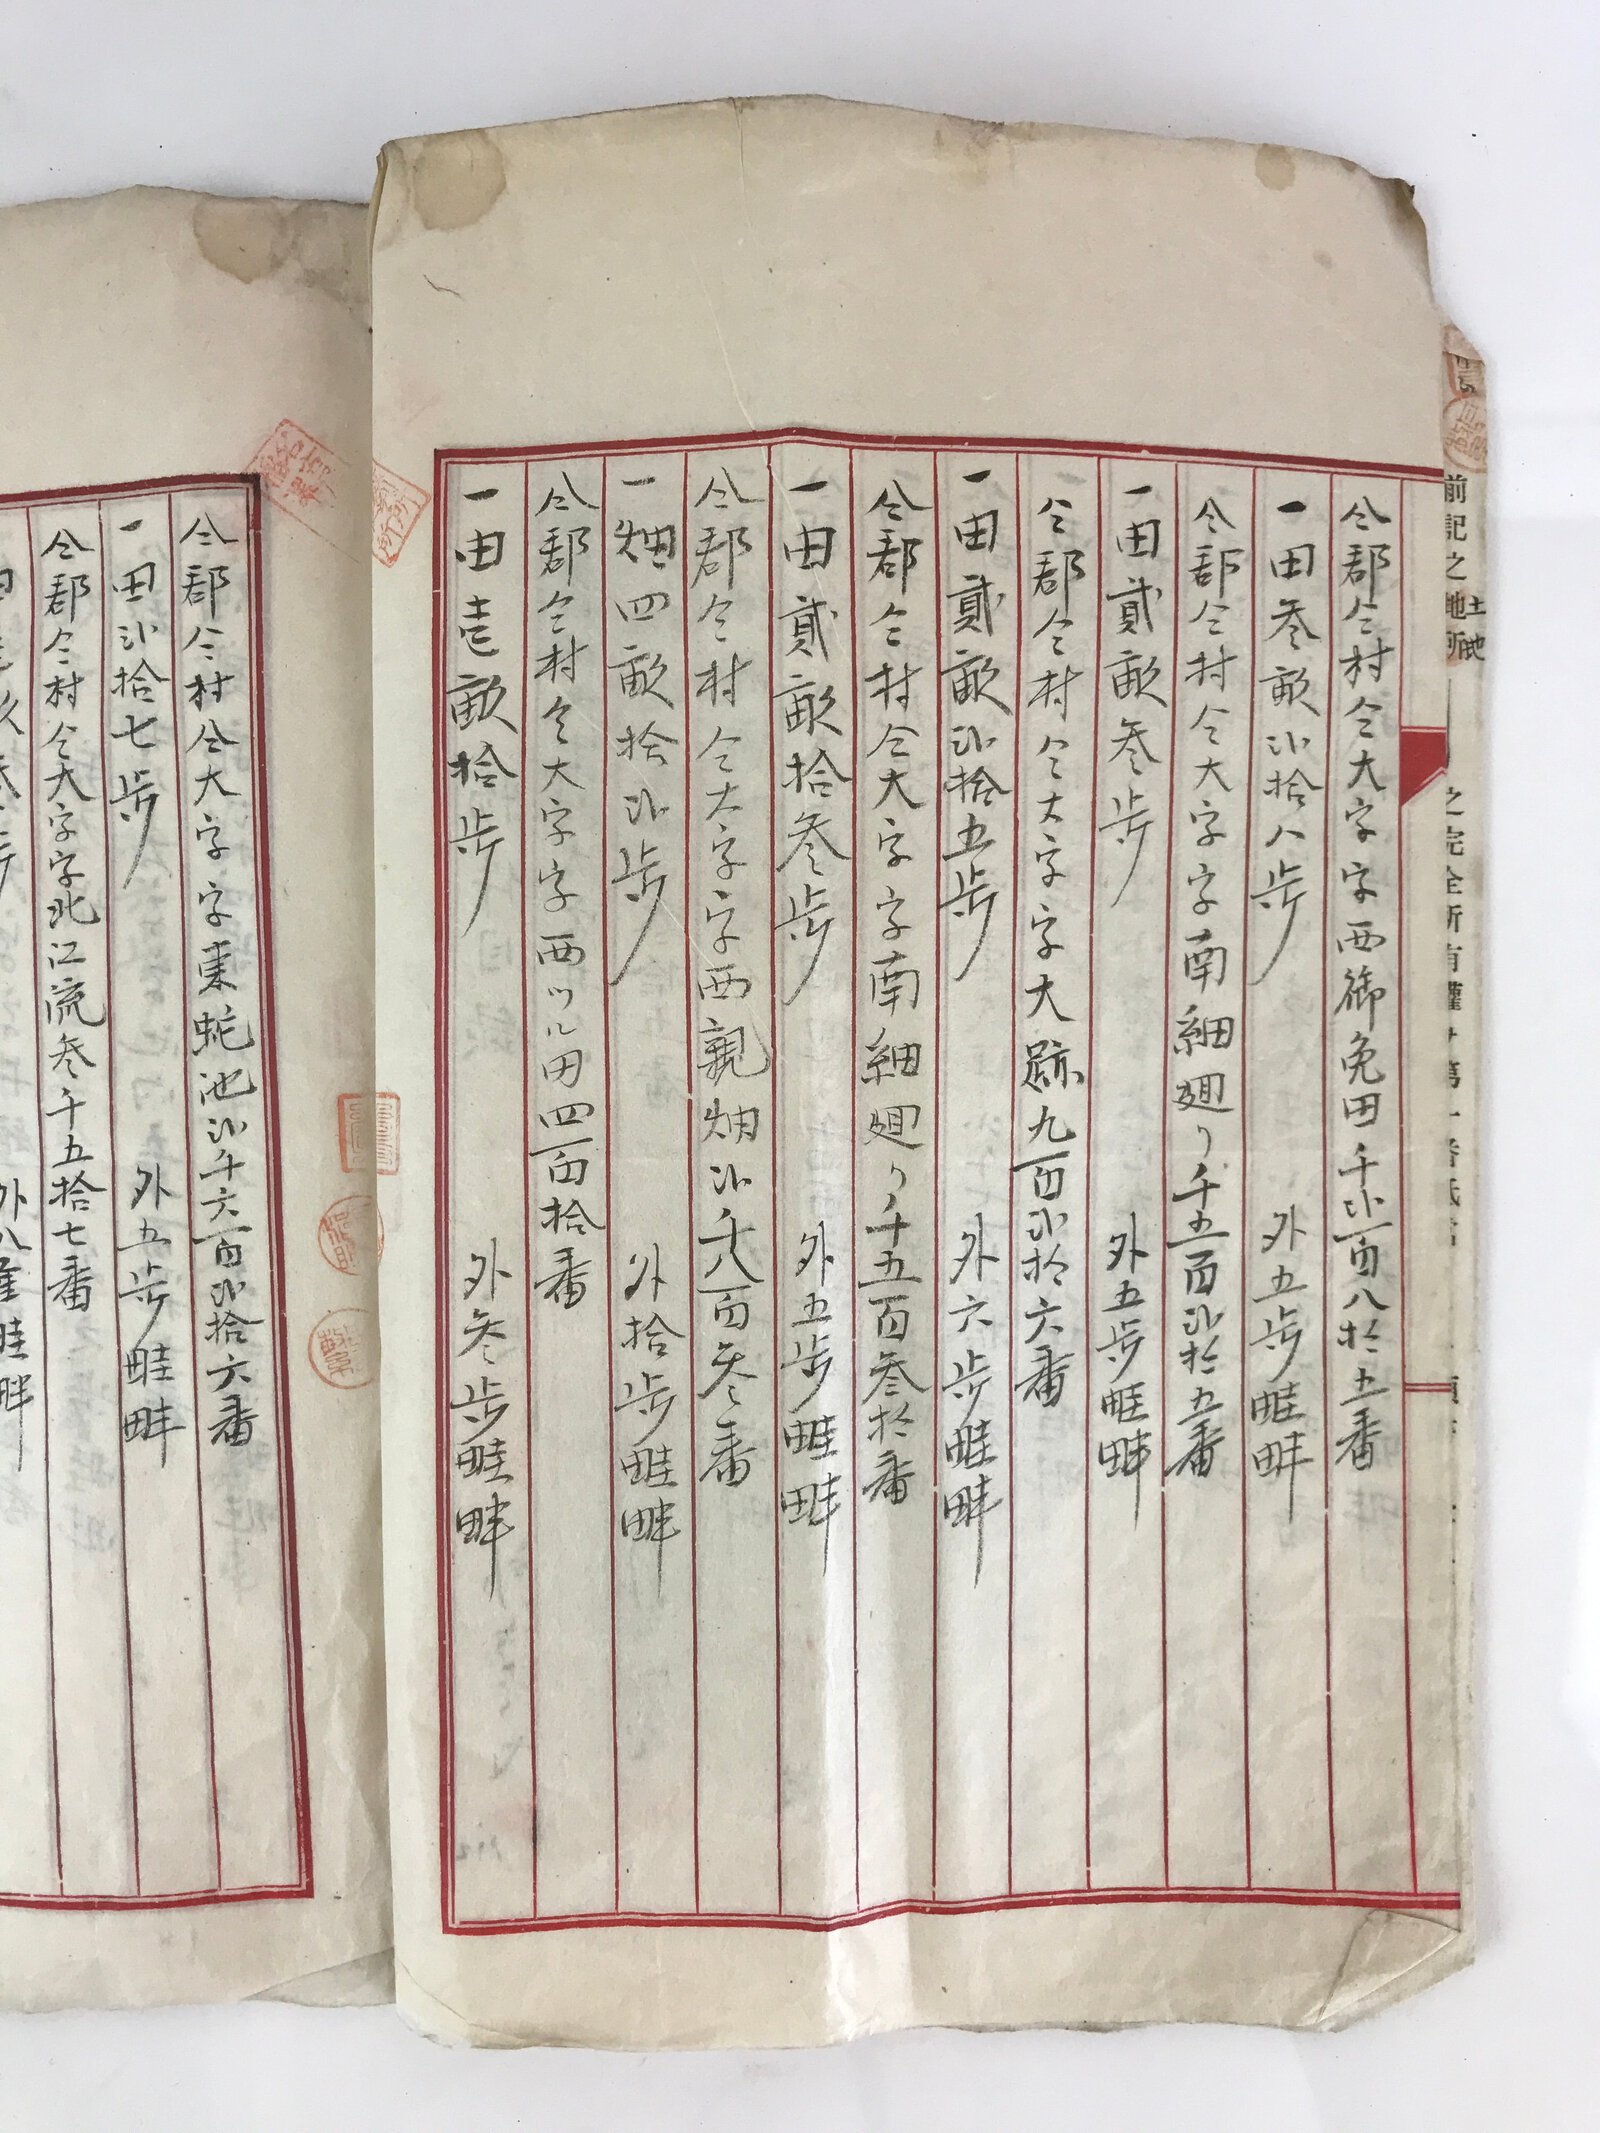 前記之地所
土地
之完全所有權ヲ第一番抵當
仝郡仝村仝大字字西御免田千弐百八拾五番
一田参畝弐拾八歩 外五歩畦畔
仝郡仝村仝大字字南細廻り千五百弐拾五番
一田貳畝参歩 外五歩畦畔
仝郡仝村仝大字字大跡九百弐拾六番
一田貳畝弐拾五歩 外六歩畦畔
仝郡仝村仝大字字南細廻り千五百参拾番
一田貳畝拾参歩 外五歩畦畔
仝郡仝村仝大字字西親畑弐千八百参番
一畑四畝拾弐歩 外拾歩畦畔
仝郡仝村仝大字字西ツル田四百拾番
一田壱畝拾歩 外参歩畦畔
仝郡仝村仝大字字東蛇池弐千六百弐拾六番
一田弐拾七歩 外五歩畦畔
仝郡仝村仝大字字北江流参千五拾七番